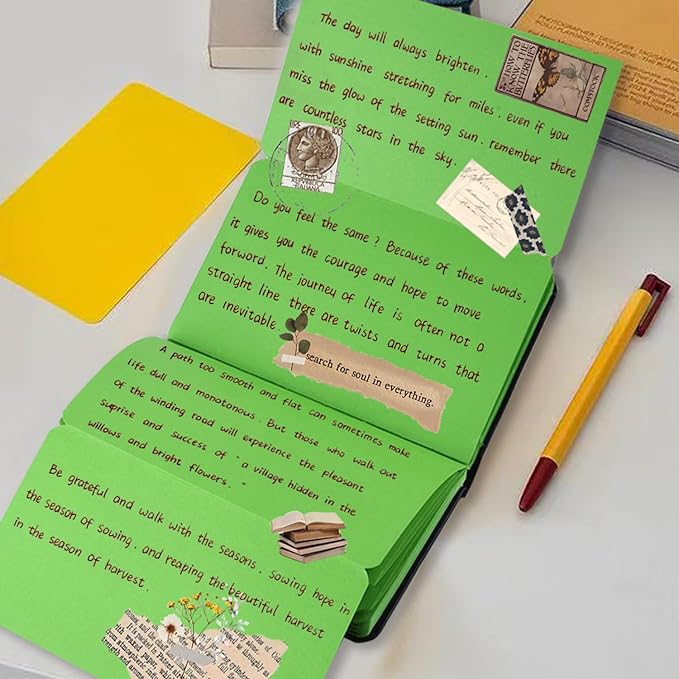 The day will always brighten.
with sunshine stretching for miles. even if you
miss the glow of the setting sun. remember there
are countless stars in the sky.
HOW TO
KNOW THE
BUTTERFLIES
COMSTOCK
LIRE 100
REPVBBLICA
ITALIANA
Do you feel the same ? Because of these words,
it gives you the courage and hope to move
forward. The journey of life is often not a
straight line there are twists and turns that
are inevitable.
search for soul in everything.
A path too smooth and flat can sometimes make
life dull and monotonous. But those who walk out
of the winding road will experience the pleasant
Suprise and success of "a village hidden in the
willows and bright flowers. "
Be grateful and walk with the seasons. Sowing hope in
the season of sowing. and reaping the beautiful harvest
in the season of harvest.